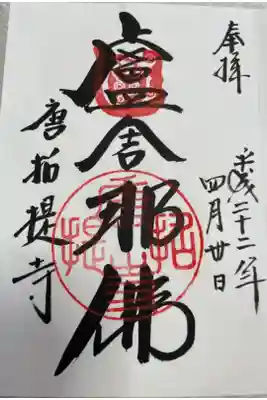 奉拝
平成二十二年
四月廿日
盧舎那佛
唐招提寺